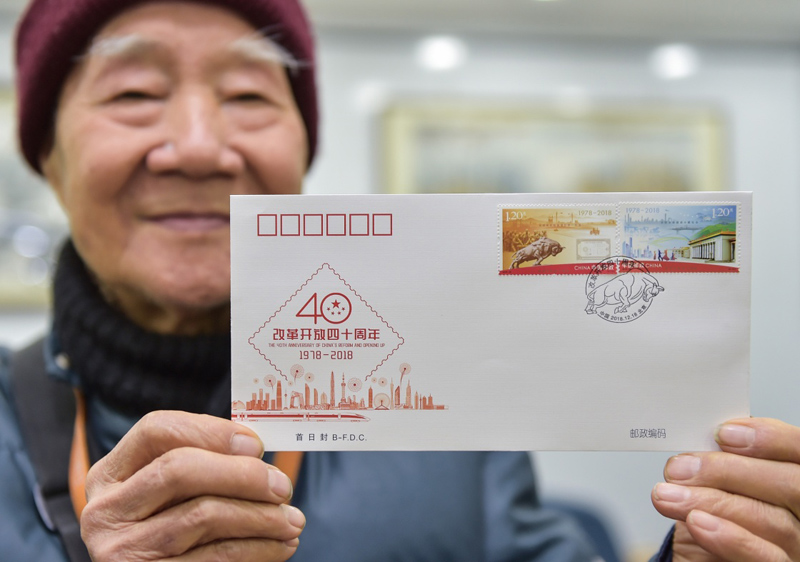 1.20元
1978-2018
1978-2018
1.20元
CHINA 中国邮政
中国邮政 CHINA
中国 2018.12.18 北京
40
改革开放四十周年
THE 40TH ANNIVERSARY OF CHINA'S REFORM AND OPENING UP
1978-2018
首日封 B-F.D.C.
邮政编码